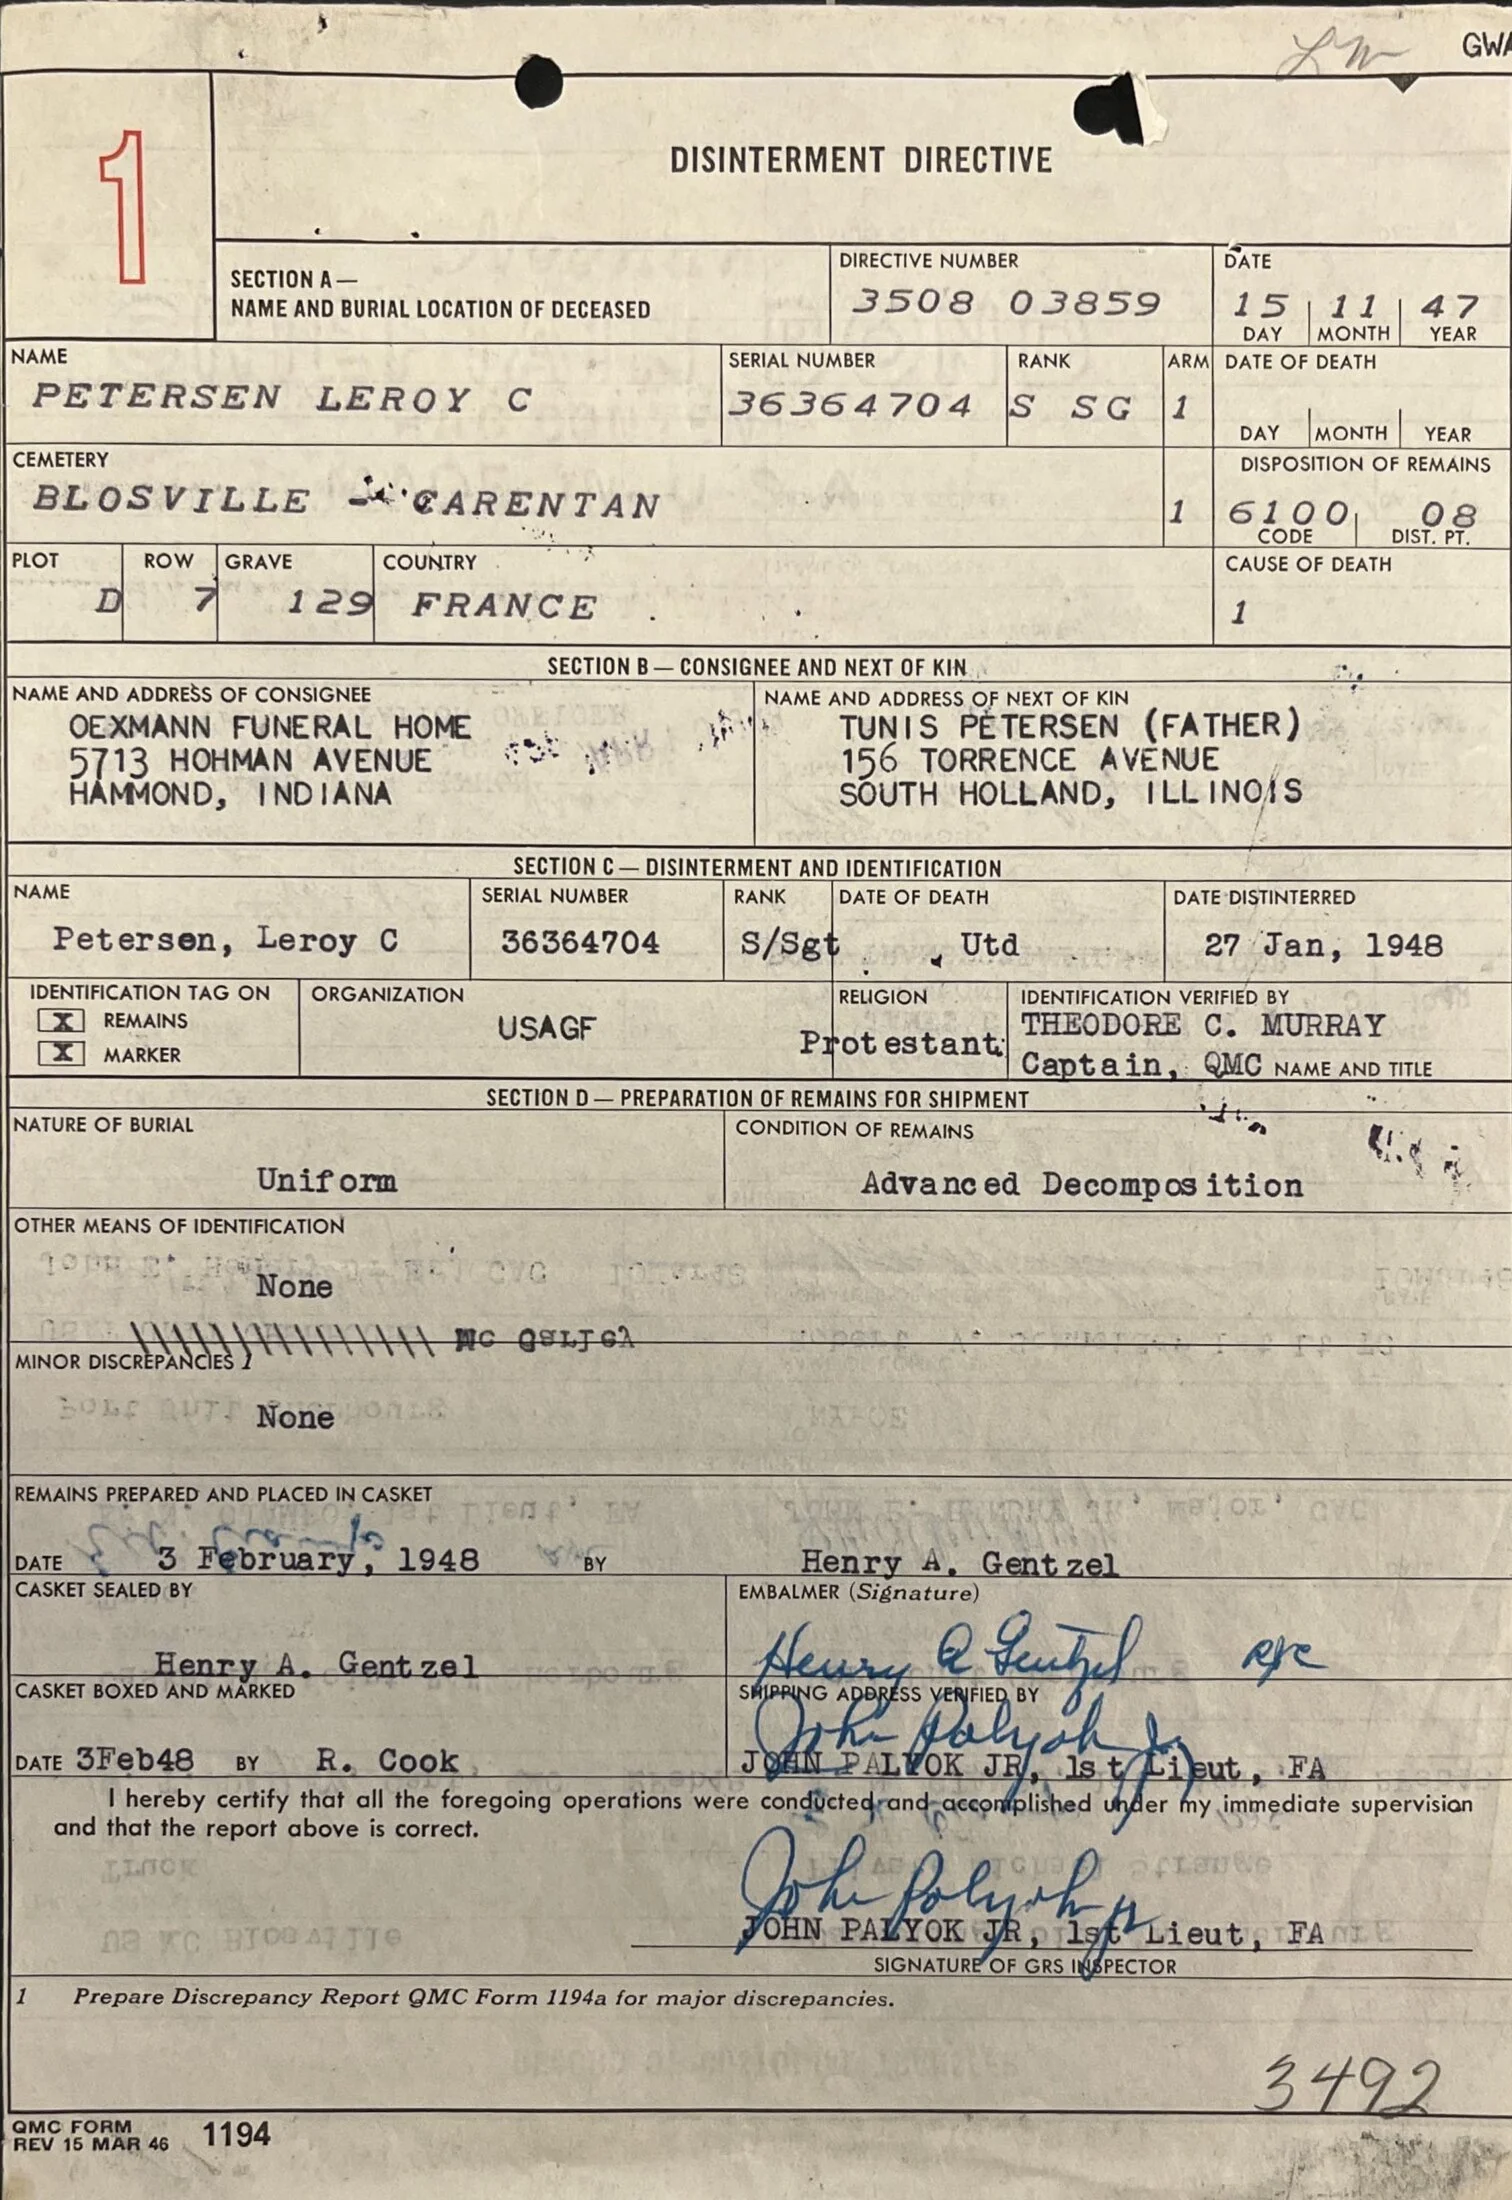 GWA
1
DISINTERMENT DIRECTIVE
SECTION A—
NAME AND BURIAL LOCATION OF DECEASED
DIRECTIVE NUMBER
3508 03859
DATE
15 11 47
DAY MONTH YEAR
NAME
PETERSEN LEROY C
SERIAL NUMBER
36364704
RANK
S SG
ARM
1
DATE OF DEATH
DAY MONTH YEAR
CEMETERY
BLOSVILLE - CARENTAN
1
DISPOSITION OF REMAINS
6100 08
CODE DIST. PT.
PLOT
D
ROW
7
GRAVE
129
COUNTRY
FRANCE
CAUSE OF DEATH
1
SECTION B — CONSIGNEE AND NEXT OF KIN
NAME AND ADDRESS OF CONSIGNEE
OEXMANN FUNERAL HOME
5713 HOHMAN AVENUE
HAMMOND, INDIANA
NAME AND ADDRESS OF NEXT OF KIN
TUNIS PETERSEN (FATHER)
156 TORRENCE AVENUE
SOUTH HOLLAND, ILLINOIS
SECTION C — DISINTERMENT AND IDENTIFICATION
NAME
Petersen, Leroy C
SERIAL NUMBER
36364704
RANK
S/Sgt
DATE OF DEATH
Utd
DATE DISTINTERRED
27 Jan, 1948
IDENTIFICATION TAG ON
X REMAINS
X MARKER
ORGANIZATION
USAGF
RELIGION
Protestant
IDENTIFICATION VERIFIED BY
THEODORE C. MURRAY
Captain, QMC NAME AND TITLE
SECTION D — PREPARATION OF REMAINS FOR SHIPMENT
NATURE OF BURIAL
Uniform
CONDITION OF REMAINS
Advanced Decomposition
OTHER MEANS OF IDENTIFICATION
None
MINOR DISCREPANCIES 1
None
REMAINS PREPARED AND PLACED IN CASKET
DATE 3 February, 1948 BY Henry A. Gentzel
CASKET SEALED BY
Henry A. Gentzel
EMBALMER (Signature)
Henry A Gentzel
CASKET BOXED AND MARKED
DATE 3Feb48 BY R. Cook
SHIPPING ADDRESS VERIFIED BY
John Palyok Jr
JOHN PALYOK JR, 1st Lieut, FA
I hereby certify that all the foregoing operations were conducted and accomplished under my immediate supervision
and that the report above is correct.
John Palyok Jr
JOHN PALYOK JR, 1st Lieut, FA
SIGNATURE OF GRS INSPECTOR
1 Prepare Discrepancy Report QMC Form 1194a for major discrepancies.
3492
QMC FORM
REV 15 MAR 46 1194